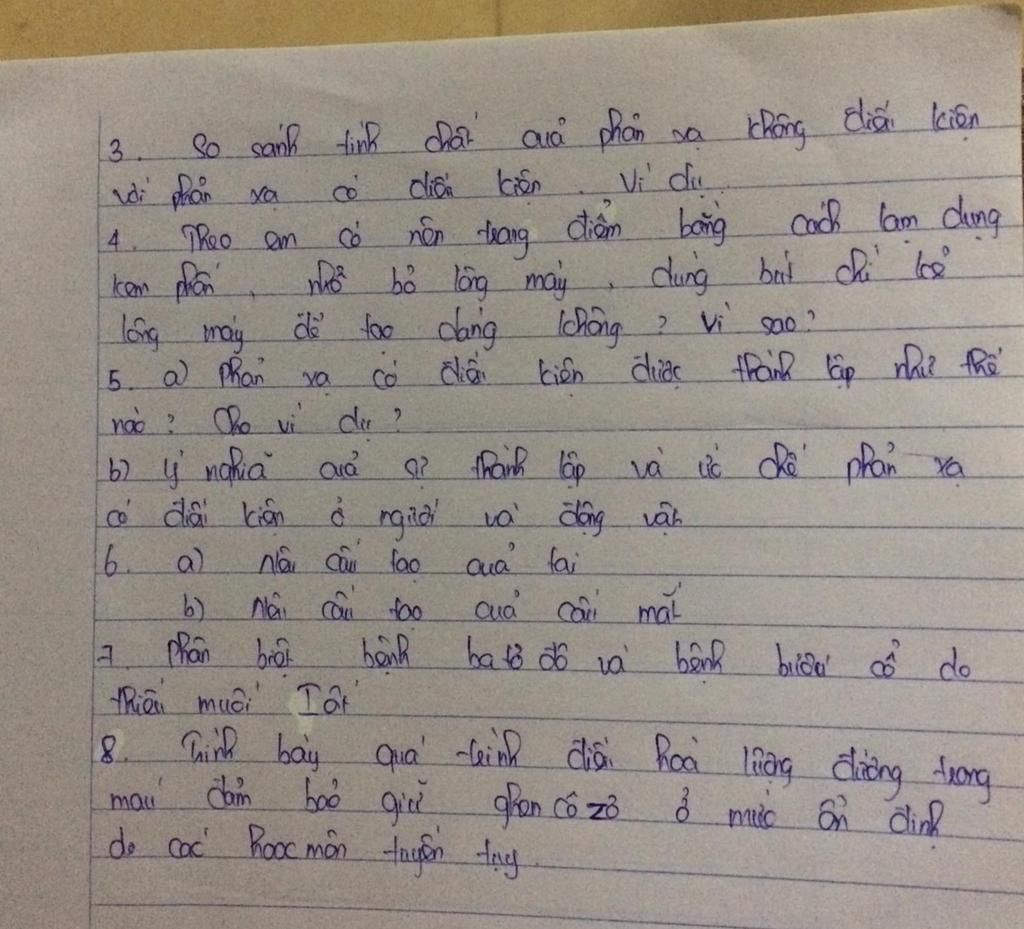 3. So sánh tính chất của phản xạ không điều kiện
với phản xạ có điều kiện. Ví dụ.
4. Theo em có nên trang điểm bằng cách lạm dụng
kem phấn, nhổ bỏ lông mày, dùng bút chì kẻ
lông mày để tạo dáng không? Vì sao?
5. a) Phản xạ có điều kiện được thành lập như thế
nào? Cho ví dụ?
b) Ý nghĩa của sự thành lập và ức chế phản xạ
có điều kiện ở người và động vật
6. a) Nêu cấu tạo của tai
b) Nêu cấu tạo của cầu mắt
7. Phân biệt bệnh bazơđô và bệnh bướu cổ do
thiếu muối Iốt
8. Trình bày quá trình điều hoà lượng đường trong
máu đảm bảo giữ glucôzơ ở mức ổn định
do các hoocmôn tuyến tụy.